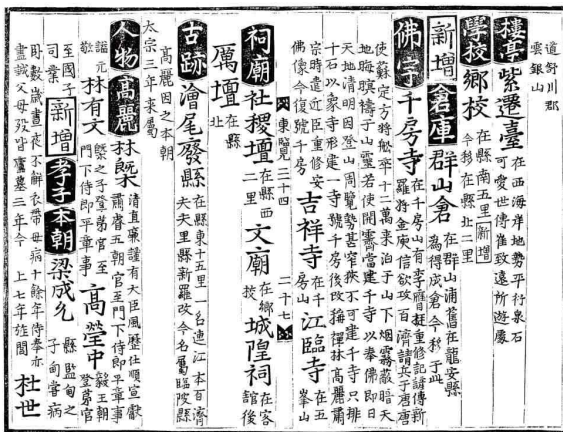 道舒川郡
雲銀山
樓亭 紫遷臺 在西海岸地勢平行泉石
可愛世傳崔致遠所遊處
學校 鄉校 在縣南五里 新增
今移在縣北二里
新增 倉庫 群山倉 在群山浦舊在龍安縣
為得成倉今移于此
佛宇 千房寺 在千房山有李膺挺重修記諺傳新
羅將金庾信欲攻百濟請兵于唐唐
使蘇定方將船卒十二萬来泊于山下烟霧蔽暗天
地晦暝禱于山靈若使開霽當建千寺以奉佛即日
天地清明因登山周覧勢甚窄狹不可建千寺只排
十石以象寺形建一寺號千房後改稱禪林高麗肅
宗時遣近臣重修安
佛像今復號千房
吉祥寺 在千
房山
江臨寺 在五
峯山
二十四
二十七
祠廟 社稷壇 在縣西
二里
文廟 在鄉
校
城隍祠 在客
舘後
厲壇 在縣
北
古跡 澮尾廢縣 在縣東十五里一名連江本百濟
夫夫里縣新羅改今名屬臨陂縣
高麗因之本朝
太宗三年来屬
人物 高麗 林槩 清直廉謹有大臣風歷仕順宣獻
肅睿五朝官至門下侍郎平章事
諡元
敬
林有文 槩之子登第官至
門下侍郎平章事
高瑩中 毅王朝
登第官
至國子
司業
新增 孝子 本朝 梁成允 縣監甸之
子甸嘗病
卧數歲晝夜不解衣帶母病十餘年侍奉亦
盡誠父母歿皆廬墓三年今 上七年旌閭
杜世